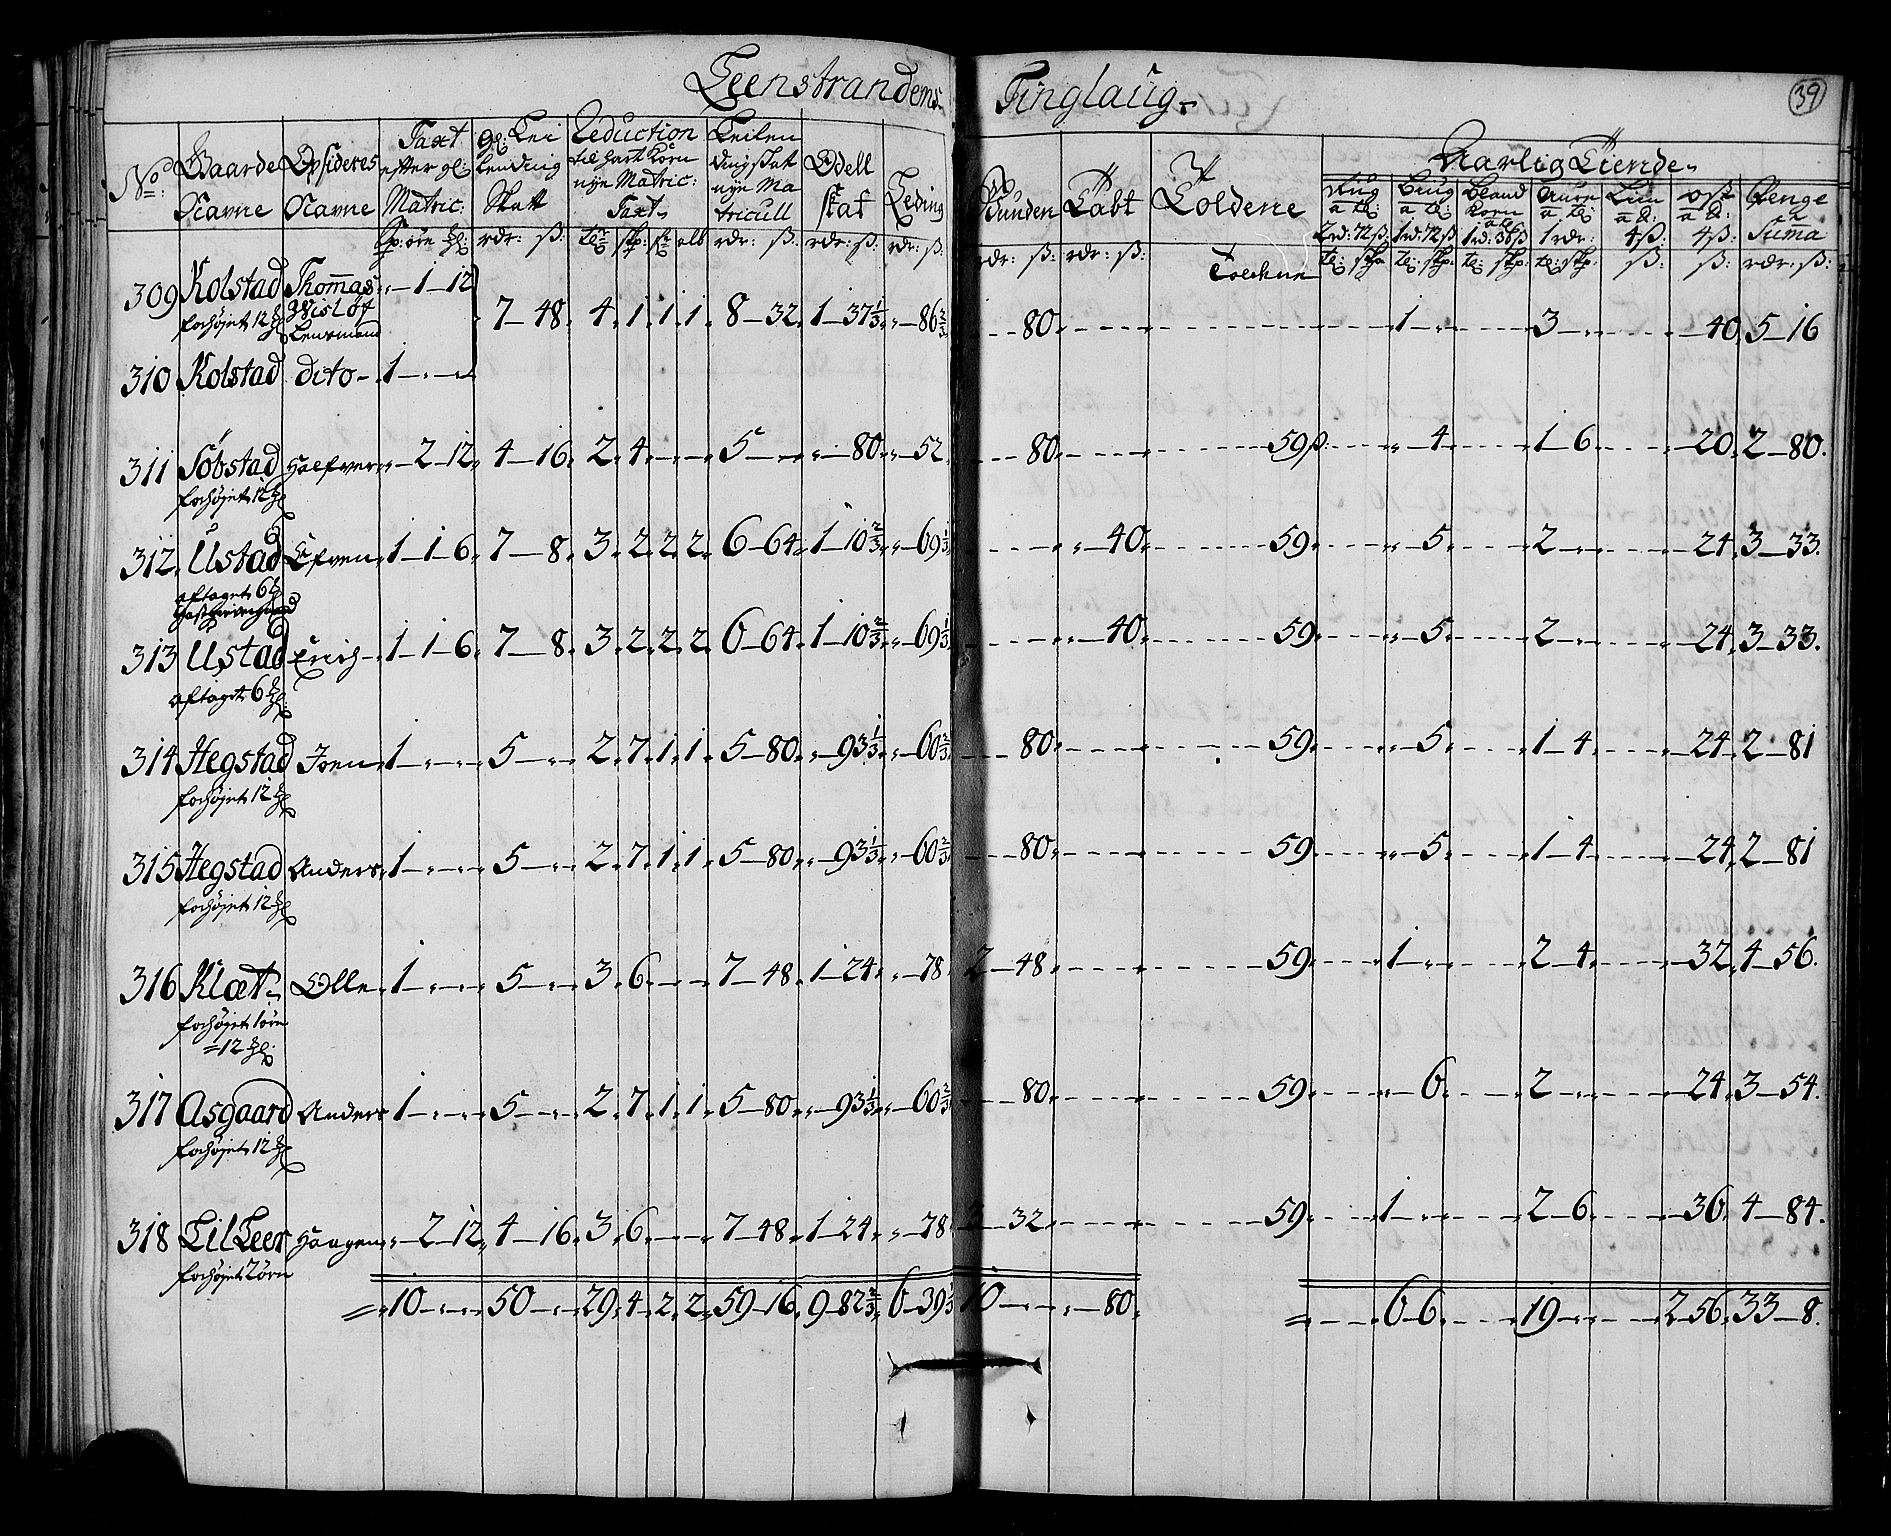 Leenstrandens Tinglaug
39
No: Gaarde Nafne Opsideres Nafne Taxt efter gl: Matric: gl: Lei lending Skatt Reduction til Hart Korn nye Matric: Taxt Leilen dingskat nye Ma tricull Odell skat Leding Vunden Tabt Toldene Aarlig Tiende
Rug a tl: 2rd: 72ß Biug a tl: 1rd: 72ß Bland Korn a tl: 1rd: 36ß Aure a tl: 1rdr: Lin a 4ß: Ost a 4ß: Penge Suma
Sp: øre rdr: ß: tl: skp: alb rdr: ß: rdr: ß: rdr: ß: rdr: ß: rdr: ß: Toldene tl: skp: tl: skp: tl: skp: tl: skp: ß: ß: rdr: ß:
309 Kolstad Thomas 1 12 7 48 4 1 1 1 8 32 1 37 1/3 86 2/3 80 1 3 40 5 16
forhøjet 12
Lensmand
310 Kolstad dito 1
311 Søbstad Halfver 2 12 4 16 2 4 5 80 52 80 59ß 4 1 6 20 2 80
forhøjet 12
312 Ustad Efven 1 1 6 7 8 3 2 2 2 6 64 1 10 2/3 69 1/3 40 59 5 2 24 3 33
aftaget 6
313 Ustad Erich 1 1 6 7 8 3 2 2 2 6 64 1 10 2/3 69 1/3 40 59 5 2 24 3 33
aftaget 6
314 Hegstad Joen 1 5 2 7 1 1 5 80 93 1/3 60 2/3 80 59 5 1 4 24 2 81
forhøjet 12
315 Hegstad Anders 1 5 2 7 1 1 5 80 93 1/3 60 2/3 80 59 5 1 4 24 2 81
forhøjet 12
316 Klæt Olle 1 5 3 6 7 48 1 24 78 2 48 59 1 2 4 32 4 56
forhøjet 1 øre
12
317 Asgaard Anders 1 5 2 7 1 1 5 80 93 1/3 60 2/3 80 59 6 2 24 3 54
forhøjet 12
318 Lil Leer Haagen 2 12 4 16 3 6 7 48 1 24 78 3 32 59 1 2 6 36 4 84
forhøjet 2 øre
= 10 50 29 4 2 2 59 16 9 82 2/3 6 39 1/3 10 80 = 6 6 19 2 56 33 8